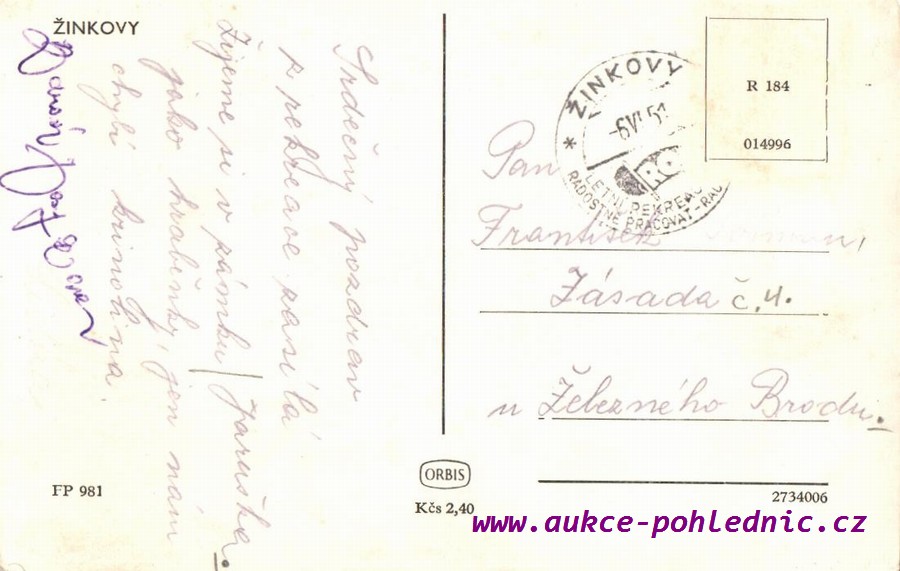 ŽINKOVY
Srdečný pozdrav
z rekreace zasílá
Jaruška.
Žijeme si v zámku
jako hraběnky, jen nám
chybí krinolina.
ŽINKOVY
-6.VI.51
LETNÍ REKREAC
RADOSTNĚ PRACOVAT - RAD
R 184
014996
Pan
František
Zásada č. 4.
u Železného Brodu.
FP 981
ORBIS
Kčs 2,40
2734006
www.aukce-pohlednic.cz